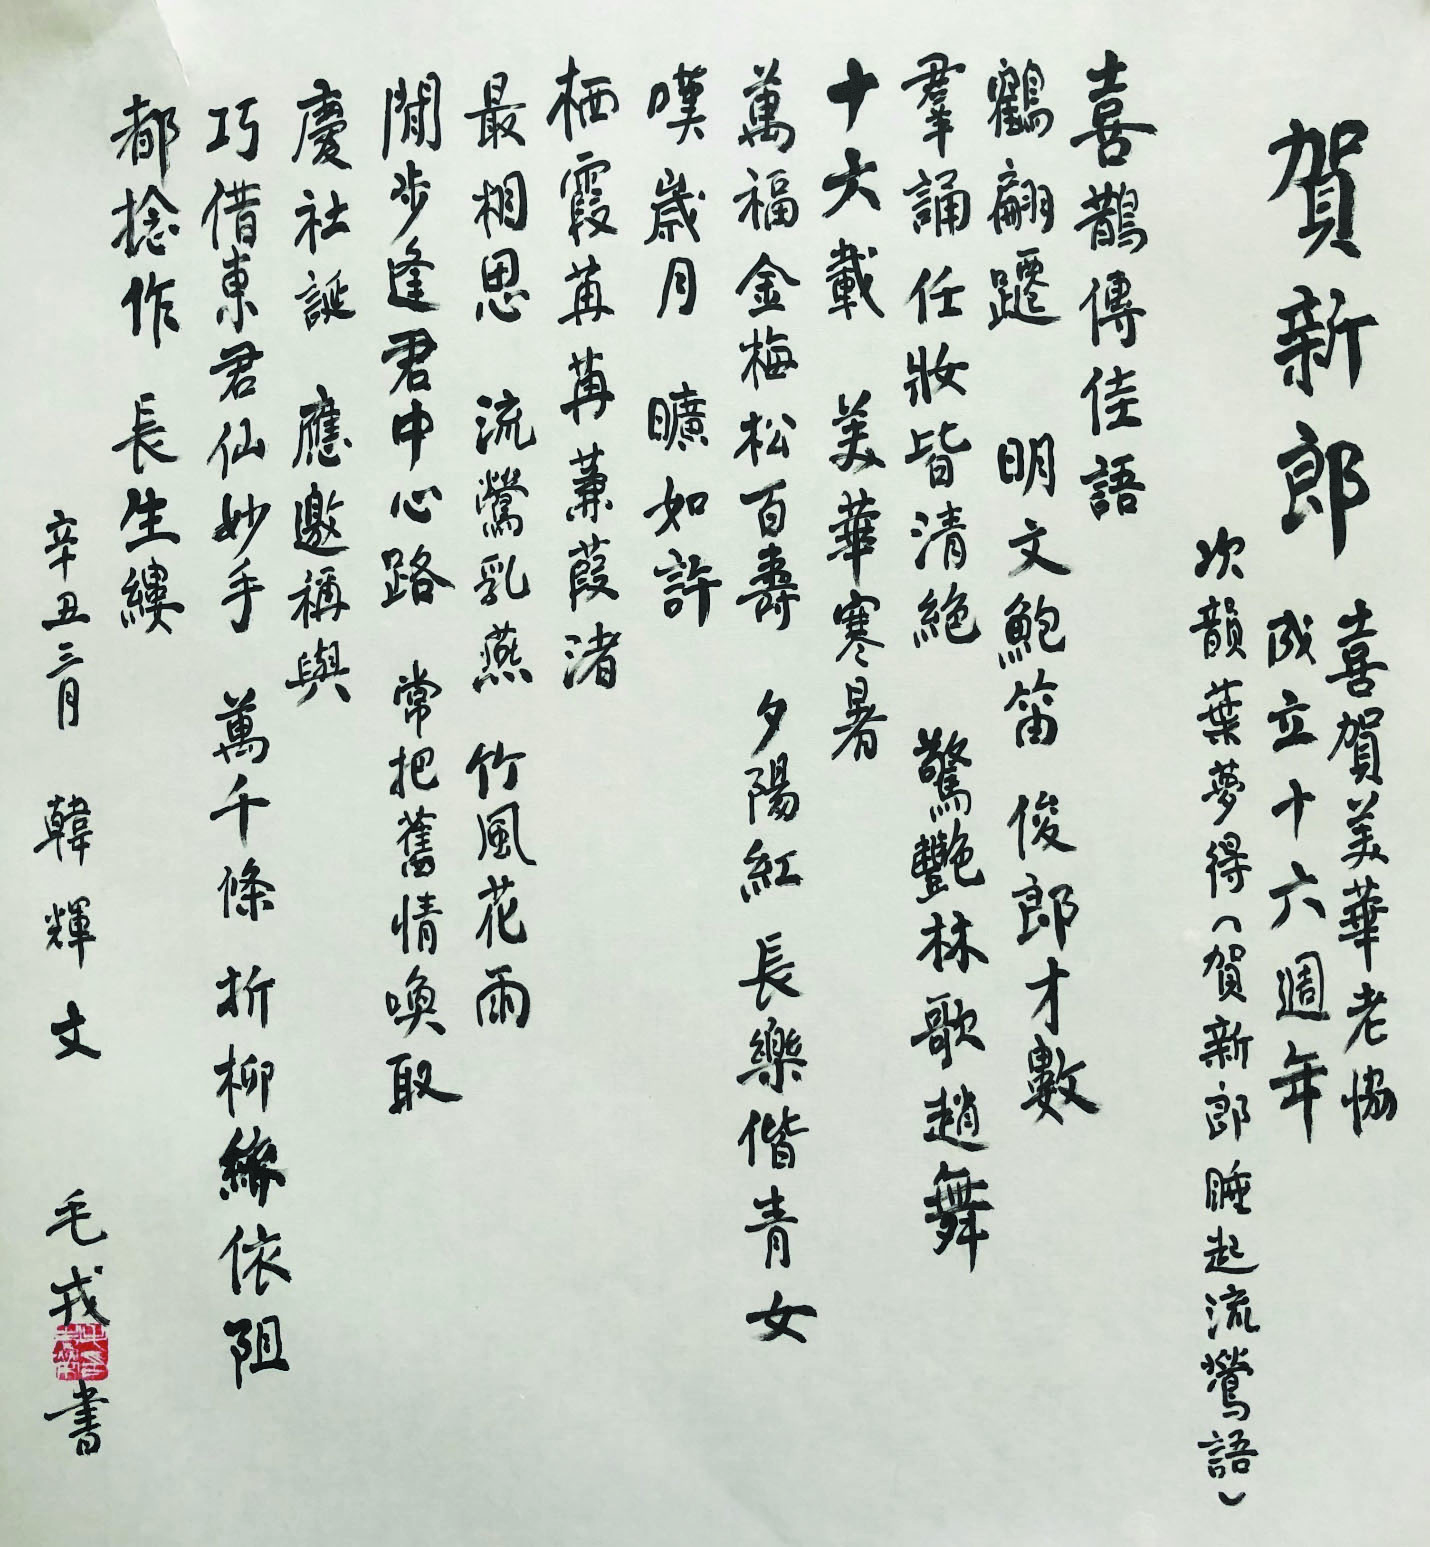 賀新郎
喜賀美華老協
成立十六週年
次韻葉夢得(賀新郎 睡起流鶯語)
喜鵲傳佳語
鶴翩躚 明文鮑笛 俊郎才數
羣誦任妝皆清絕 驚艷林歌趙舞
十六載 美華寒暑
萬福金梅松百壽 夕陽紅 長樂偕青女
嘆歲月 曠如許
栖霞苒苒蒹葭渚
最相思 流鶯乳燕 竹風花雨
閒步逢君中心路 常把舊情喚取
慶社誕 應邀稱與
巧借東君仙妙手 萬千條 折柳絲依阻
都捻作 長生縷
辛丑三月 韓輝文 毛戎書